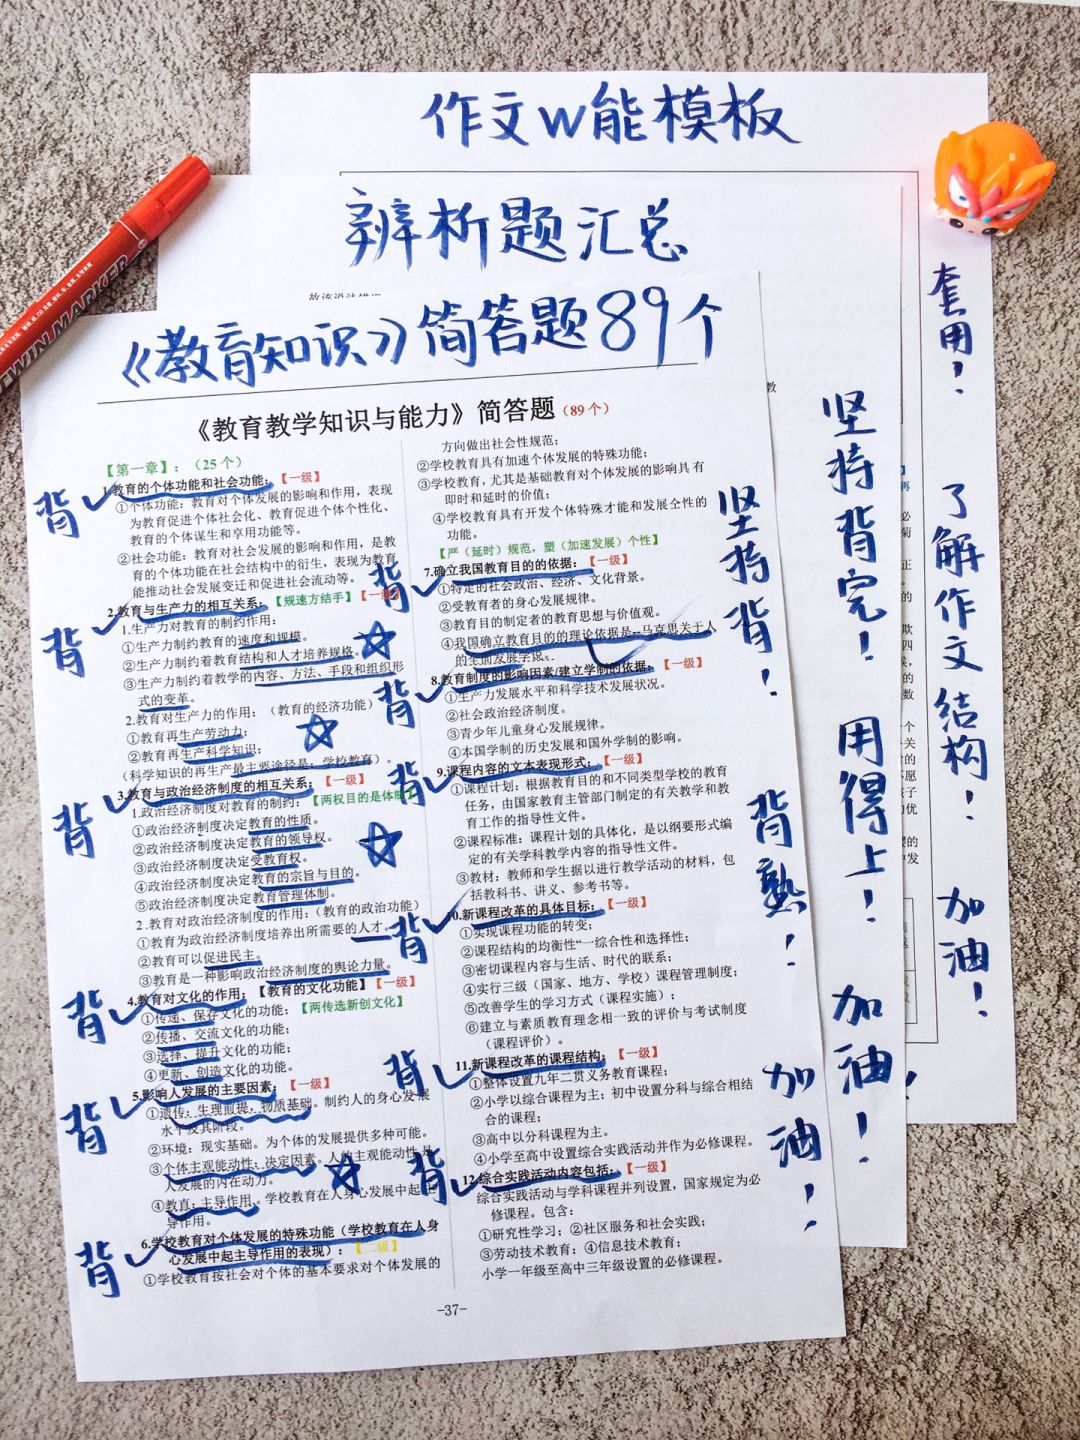 作文w能模板
辨析题汇总
《教育知识》简答题89个
《教育教学知识与能力》简答题（89个）
【第一章】：（25个）
1.教育的个体功能和社会功能：【一级】
①个体功能：教育对个体发展的影响和作用，表现
为教育促进个体社会化、教育促进个体个性化、
教育的个体谋生和享用功能等。
②社会功能：教育对社会发展的影响和作用，是教
育的个体功能在社会结构中的衍生，表现为教育
能推动社会发展变迁和促进社会流动等。
2.教育与生产力的相互关系：【规速方结手】【一级】
1.生产力对教育的制约作用：
①生产力制约教育的速度和规模。
②生产力制约着教育结构和人才培养规格。
③生产力制约着教学的内容、方法、手段和组织形
式的变革。
2.教育对生产力的作用：（教育的经济功能）
①教育再生产劳动力；
②教育再生产科学知识；
（科学知识的再生产最主要途径是：学校教育）。
3.教育与政治经济制度的相互关系：【一级】
1.政治经济制度对教育的制约：【两权目的是体制】
①政治经济制度决定教育的性质。
②政治经济制度决定教育的领导权。
③政治经济制度决定受教育权。
④政治经济制度决定教育的宗旨与目的。
⑤政治经济制度决定教育管理体制。
2.教育对政治经济制度的作用：（教育的政治功能）
①教育为政治经济制度培养出所需要的人才。
②教育可以促进民主。
③教育是一种影响政治经济制度的舆论力量。
4.教育对文化的作用：【教育的文化功能】【一级】
①传递、保存文化的功能：【两传选新创文化】
②传播、交流文化的功能；
③选择、提升文化的功能；
④更新、创造文化的功能。
5.影响人发展的主要因素：【一级】
①遗传：生理前提，物质基础。制约人的身心发展
水平及其阶段。
②环境：现实基础。为个体的发展提供多种可能。
③个体主观能动性：决定因素。人的主观能动性是
人发展的内在动力。
④教育：主导作用。学校教育在人身心发展中起主
导作用。
6.学校教育对个体发展的特殊功能（学校教育在人身
心发展中起主导作用的表现）：【二级】
①学校教育按社会对个体的基本要求对个体发展的
方向做出社会性规范；
②学校教育具有加速个体发展的特殊功能；
③学校教育，尤其是基础教育对个体发展的影响具有
即时和延时的价值；
④学校教育具有开发个体特殊才能和发展个性的
功能。
【严（延时）规范，塑（加速发展）个性】
7.确立我国教育目的的依据：【一级】
①特定的社会政治、经济、文化背景。
②受教育者的身心发展规律。
③教育目的制定者的教育思想与价值观。
④我国确立教育目的的理论依据是--马克思关于人
的全面发展学说。
8.教育制度的影响因素/建立学制的依据：【一级】
①生产力发展水平和科学技术发展状况。
②社会政治经济制度。
③青少年儿童身心发展规律。
④本国学制的历史发展和国外学制的影响。
9.课程内容的文本表现形式：【一级】
①课程计划：根据教育目的和不同类型学校的教育
任务，由国家教育主管部门制定的有关教学和教
育工作的指导性文件。
②课程标准：课程计划的具体化，是以纲要形式编
定的有关学科教学内容的指导性文件。
③教材：教师和学生据以进行教学活动的材料，包
括教科书、讲义、参考书等。
10.新课程改革的具体目标：【一级】
①实现课程功能的转变；
②课程结构的均衡性一综合性和选择性；
③密切课程内容与生活、时代的联系；
④实行三级（国家、地方、学校）课程管理制度；
⑤改善学生的学习方式（课程实施）；
⑥建立与素质教育理念相一致的评价与考试制度
（课程评价）。
11.新课程改革的课程结构：【一级】
①整体设置九年一贯义务教育课程；
②小学以综合课程为主；初中设置分科与综合相结
合的课程；
③高中以分科课程为主。
④小学至高中设置综合实践活动并作为必修课程。
12.综合实践活动内容包括：【一级】
综合实践活动与学科课程并列设置，国家规定为必
修课程。包含：
①研究性学习；②社区服务和社会实践；
③劳动技术教育；④信息技术教育；
小学一年级至高中三年级设置的必修课程。
-37-
背
背
背
背
背
背
背
背
背
背
背
背
坚持背！
背熟！
加油！
坚持背完！
用得上！
加油！
套用！
了解作文结构！
加油！
TWIN MARKER